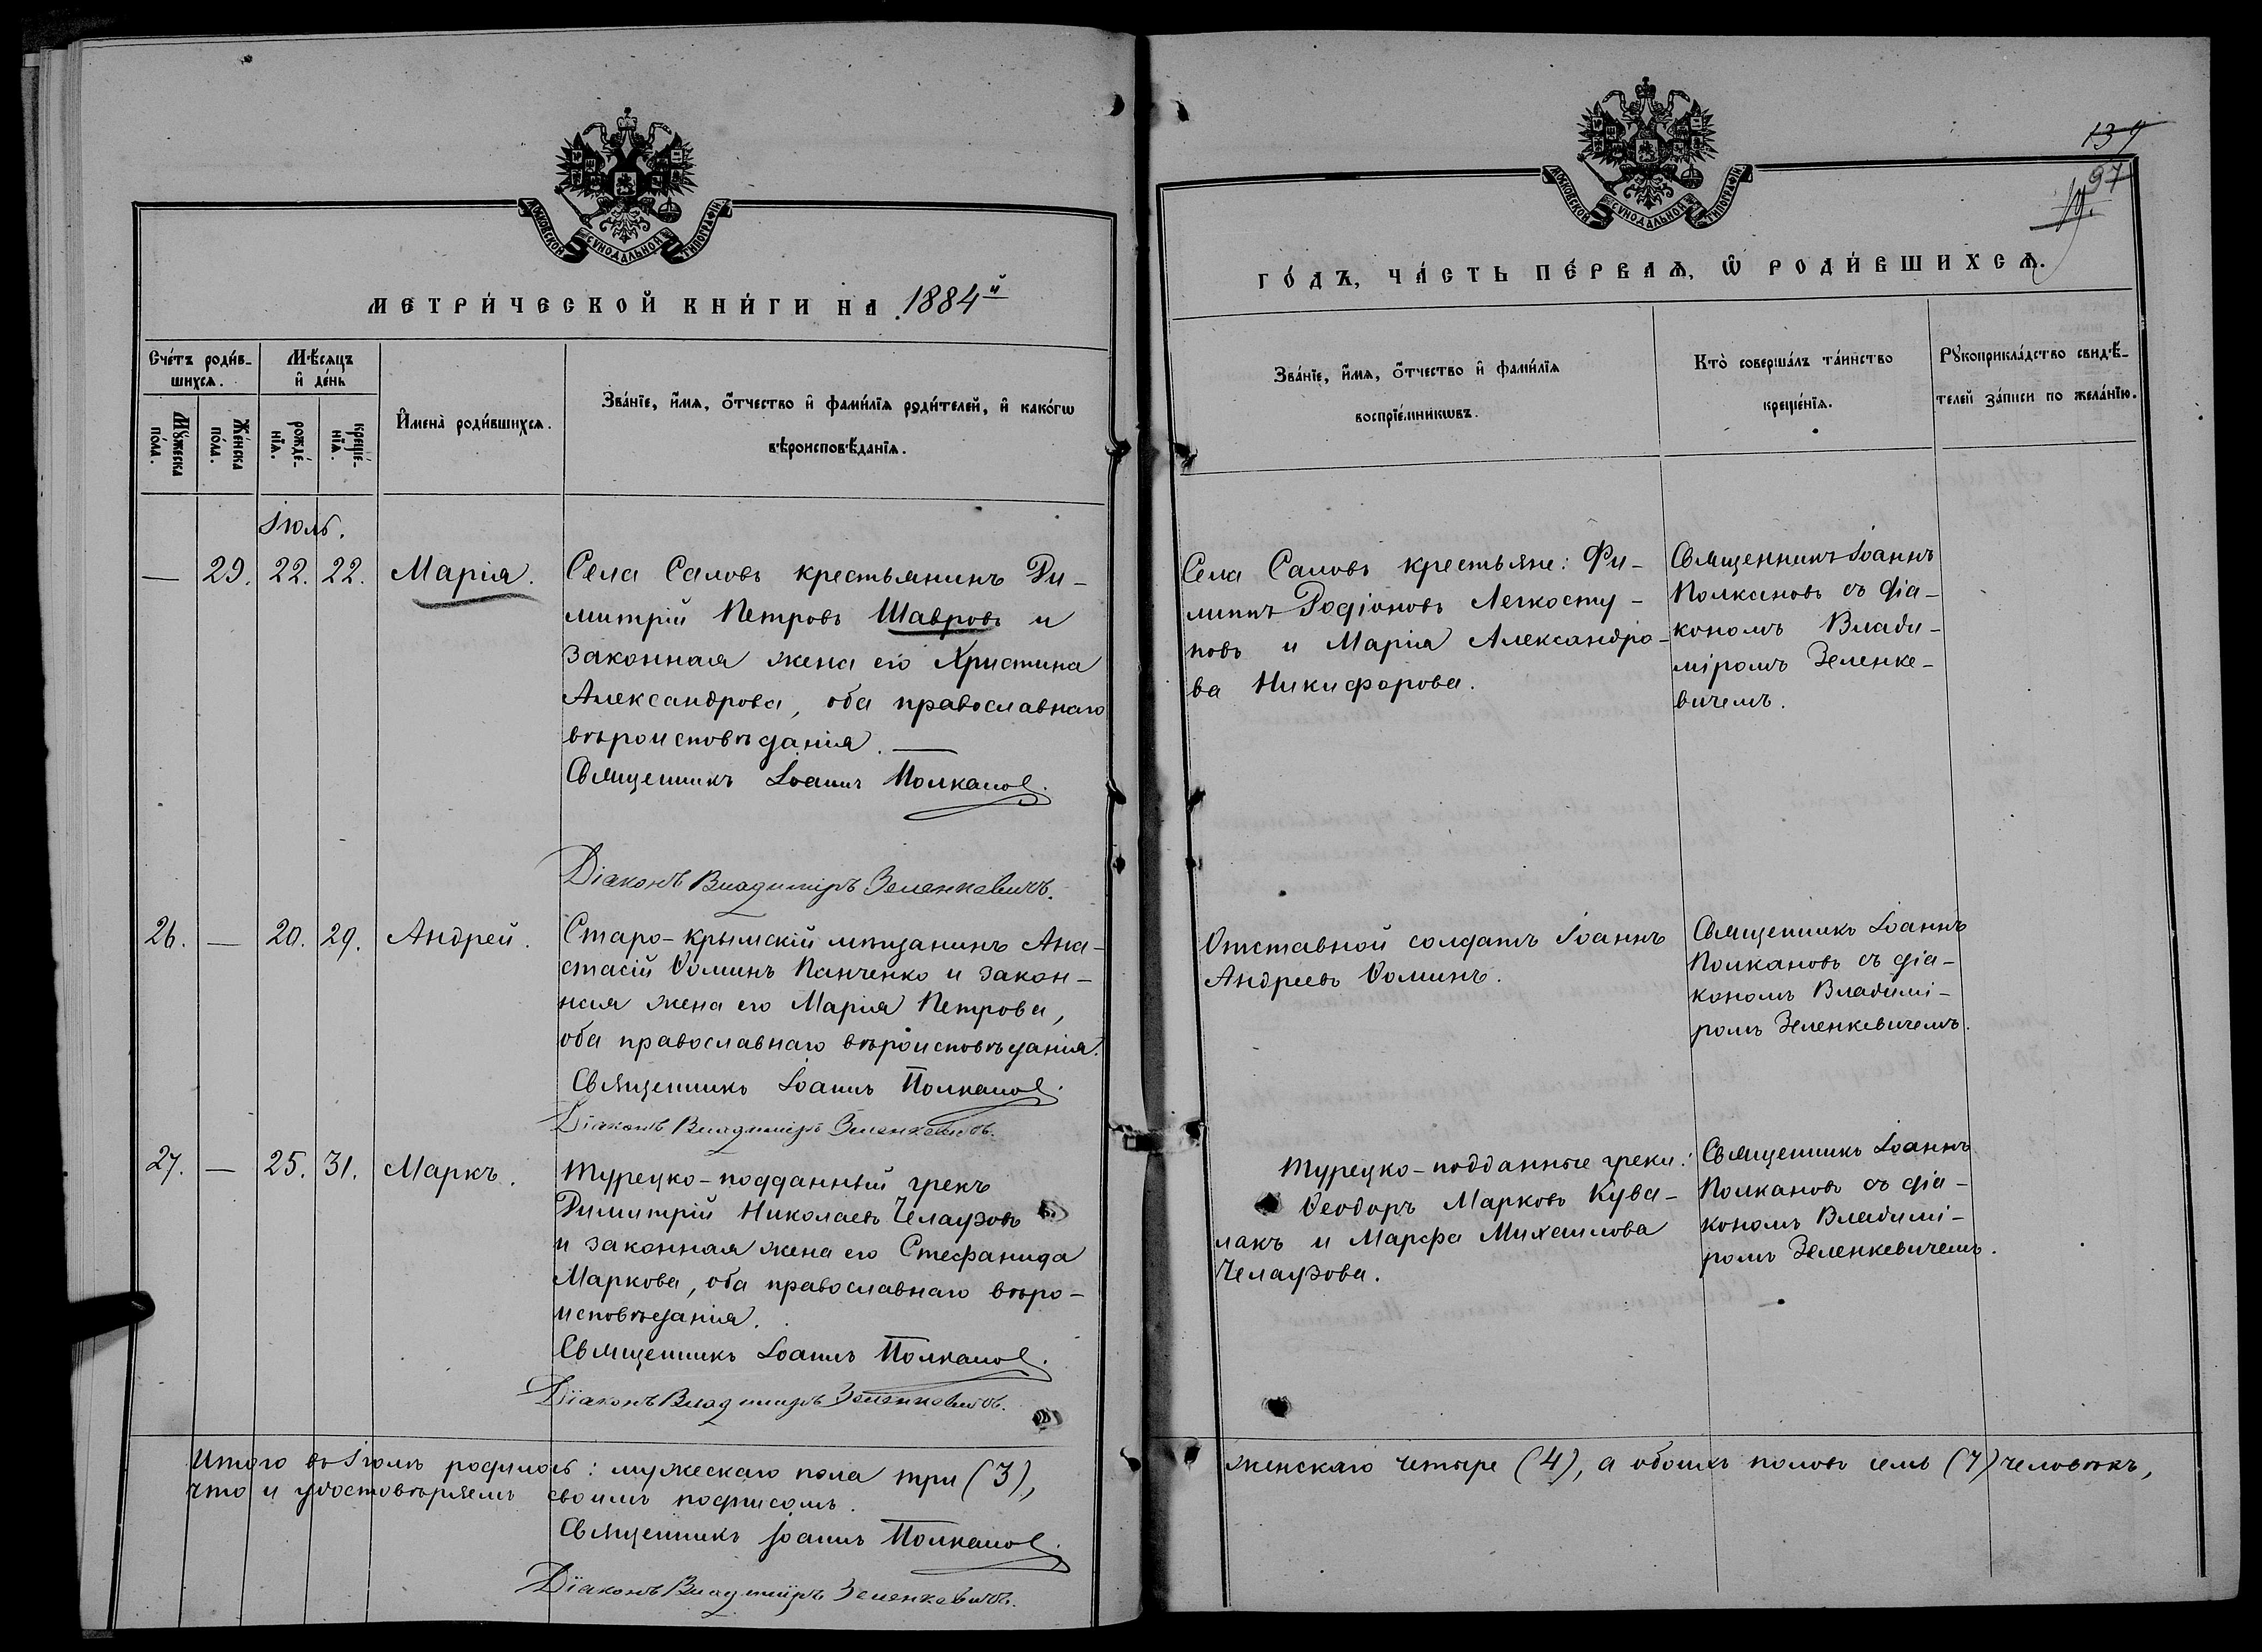 МОСКОВСКОЙ СѴНОДАЛЬНОЙ ТИПОГРАФІИ
МЕТРИ́ЧЕСКОЙ КНИ́ГИ НА 1884й
Сче́тъ роди́в-
шихсѧ.
Мѣ́сѧцъ
и҆ де́нь
Мꙋ́жеска
по́ла.
Же́нска
по́ла.
рожде́-
нїѧ.
креще́-
нїѧ.
И҆мена̀ роди́вшихсѧ.
Зва́нїе, и҆́мѧ, ѻ҆́тчество и҆ фами́лїѧ роди́телей, и҆ како́гѡ
вѣроисповѣ́данїѧ.
Іюль.
— 29. 22. 22. Марія.
Села Саловъ крестьянинъ Ди-
митрій Петровъ Шавровъ и
законная жена его Христина
Александрова, оба православнаго
вѣроисповѣданія. —
Священникъ Іоаннъ Полкановъ.
Діаконъ Владиміръ Зеленкевичъ.
26. — 20. 29. Андрей.
Старо-крымскій мѣщанинъ Ана-
стасій Ѳоминъ Панченко и закон-
ная жена его Марія Петрова,
оба православнаго вѣроисповѣданія.
Священникъ Іоаннъ Полкановъ.
Діаконъ Владиміръ Зеленкевичъ.
27. — 25. 31. Маркъ.
Турецко-подданный грекъ
Димитрій Николаевъ Челаузовъ
и законная жена его Стефанида
Маркова, оба православнаго вѣро-
исповѣданія.
Священникъ Іоаннъ Полкановъ.
Діаконъ Владиміръ Зеленкевичъ.
Итого въ Іюлѣ родилось: мужескаго пола три (3),
что и удостовѣряемъ своимъ подписомъ.
Священникъ Іоаннъ Полкановъ.
Діаконъ Владиміръ Зеленкевичъ.
139
97
МОСКОВСКОЙ СѴНОДАЛЬНОЙ ТИПОГРАФІИ
ГО́ДЪ, ЧА́СТЬ ПЕ́РВАѦ, Ѽ РОДИ́ВШИХСѦ.
Зва́нїе, и҆́мѧ, ѻ҆́тчество и҆ фами́лїѧ
воспрїе́мникѡвъ.
Кто̀ соверша́лъ та́инство
креще́нїѧ.
Рꙋкоприкла́дство свидѣ́-
телей за́писи по жела́нїю.
Села Саловъ крестьяне: Фи-
липпъ Родіоновъ Легкосту-
повъ и Марія Александро-
ва Никифорова.
Священникъ Іоаннъ
Полкановъ съ діа-
кономъ Влади-
міромъ Зеленке-
вичемъ.
Отставной солдатъ Іоаннъ
Андреевъ Ѳоминъ.
Священникъ Іоаннъ
Полкановъ съ діа-
кономъ Владимі-
ромъ Зеленкевичемъ.
Турецко-подданные греки:
Ѳеодоръ Марковъ Кува-
лакъ и Марфа Михаилова
Челаузова.
Священникъ Іоаннъ
Полкановъ съ діа-
кономъ Владимі-
ромъ Зеленкевичемъ.
женскаго четыре (4), а обоихъ половъ семь (7) человѣкъ,